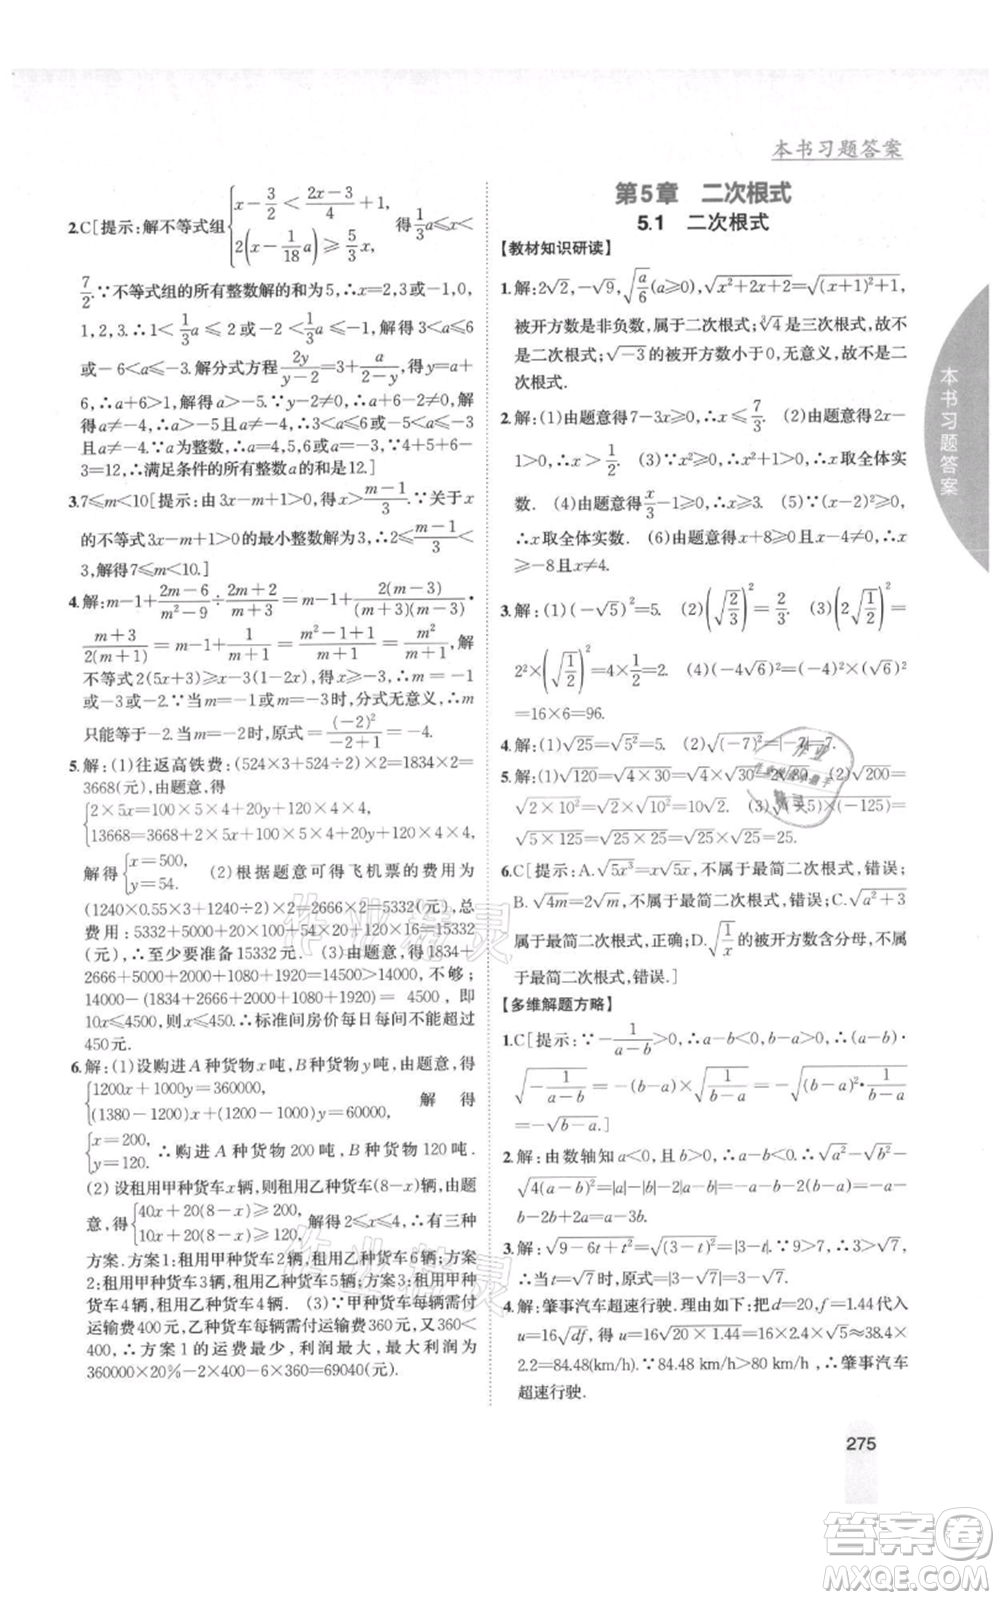 本书习题答案
2.C[提示:解不等式组{x-3/2<(2x-3)/4+1, 2(x-1/18 a)≥5/3 x, 得1/3 a≤x<
7/2.∵不等式组的所有整数解的和为5,∴x=2,3或-1,0,
1,2,3.∴1<1/3 a≤2或-2<1/3 a≤-1.∴3<a≤6或
-6<a≤-3.解分式方程2y/(y-2)+a/(y-2)=-4,得y=(8-a)/6
6,∴a+6>1,解得a>-5.∵
≠-4,∴a>-5且a≠-4.∵a为整数,
∴满足条件的所有整数a的和为12.]
3.7≤m<10[提示:由3x-m+1>0,得x>(m-1)/3.∵关于x
的不等式3x-m+1>0的最小整数解为3,∴2≤(m-1)/3<
3,解得7≤m<10.]
4.解:m-1+(2m-6)/(m²-9)÷(2m+2)/(m+3)=m-1+2(m-3)/((m+3)(m-3))·
(m+3)/(2(m+1))=m-1+1/(m+1)=(m²-1+1)/(m+1)=m²/(m+1),解
只能等于-2.当m=-2时,原式=(-2)²/(-2+1)=-4.
5.解:(1)往返高铁费:(524×3+524÷2)×2=1834×2=
3668(元),由题意,得
{2×5x=3y+20×5×4+120×4+1920,
13668=3668+2×5x+20×5×4+120×4,
解得{x=500, y=54. (2)根据题意可得飞机票的费用为
(1240×0.55×3+1240÷2)×2=2666×2=5332(元),总
费用:5332+5000+20×5×4+120×4=15332
(元),∴至少要准备15332元. (3)由题意,得1834+
2666+5000+20×5×4+120×4=14500>14000,不够;
14000-(1834+2666+2000+1080+1920)=4500,即
10x≤4500,则x≤450.∴标准间房价每日每间不能超过
450元.
6.解:(1)设购进A种货物x吨,B种货物y吨,由题意,得
{1200x+1000y=360000,
(1380-1200)x+(1200-1000)y=60000, 解得
{x=200, y=120. ∴购进A种货物200吨,B种货物120吨.
(2)设租用甲种货车x辆,则租用乙种货车(8-x)辆,由题
意,得{40x+20(8-x)≥200, 10x+20(8-x)≥120, 解得2≤x≤4,∴有三种
方案.方案1:租用甲种货车2辆,租用乙种货车6辆;方案
2:租用甲种货车3辆,租用乙种货车5辆;方案3:租用甲种
货车4辆,租用乙种货车4辆. (3)∵甲种货车每辆需付
运输费400元,乙种货车每辆需付运输费360元,又360<
400,∴方案1的运费最少,利润最大,最大利润为
360000×20%-2×400-6×360=69040(元).
第5章 二次根式
5.1 二次根式
【教材知识研读】
1.解:2√2,-√9,√(a/6)(a≥0),√(x²+2x+2)=√((x+1)²+1),
被开方数是非负数,属于二次根式;∛4是三次根式,故不
是二次根式;√-3的被开方数小于0,无意义,故不是二
次根式.
2.解:(1)由题意得7-3x≥0,∴x≤7/3. (2)由题意得2x-
1>0,∴x>1/2. (3)∵x²≥0,∴x²+1>0,∴x取全体实
数. (4)由题意得x/3>0,∴x>0. (5)∵(x-2)²≥0,
∴x取全体实数. (6)由题意得x+8≥0且x-4≠0,∴x
≥-8且x≠4.
3.解:(1)(-√5)²=5. (2)(√(2/3))²=2/3. (3)(2√(1/2))²=
2²×(√(1/2))²=4×1/2=2. (4)(-4√6)²=(-4)²×(√6)²
=16×6=96.
4.解:(1)√25=√5²=5. (2)√(-7)²=|-7|=7.
5.解:(1)√4×30=√4×√30=2√30. (2)√200=
√2×10²=√2×√10²=10√2. (3)√(-5)×(-125)=
√5×125=√25×25=√25×√25=25.
6.C[提示:A.√5x³=x√5x,不属于最简二次根式,错误;
B.√4m=2√m,不属于最简二次根式,错误;C.√(a²+3)
属于最简二次根式,正确;D.√(1/x)的被开方数含分母,不属
于最简二次根式,错误.]
【多维解题方略】
1.C[提示:∵-1/(a-b)>0,∴a-b<0,∴b-a>0,∴(a-b)·
√(-1/(a-b))=-(b-a)×√(-1/(a-b))=-√((b-a)²×1/(b-a))=
-√(b-a).]
2.解:由数轴知a<0,b>0,∴a-b<0,∴√a²-√b²+
√4(a-b)²=|a|-|b|+2|a-b|=-a-b-2(a-b)=-a
-b-2a+2b=b-3a.
3.解:√(9-6t+t²)=√(3-t)²=|3-t|.∵9>7,∴3>√7,
∴当t=√7时,原式=|3-√7|=3-√7.
4.解:肇事汽车超速行驶.理由如下:把d=20,f=1.44代入
u=16√df,得u=16√(20×1.44)=16×√28.8=38.4×
2.2=84.48(km/h).∵84.48 km/h>70 km/h,∴肇事汽车
超速行驶.
本书习题答案
275
作业精灵
作业精灵
答案圈